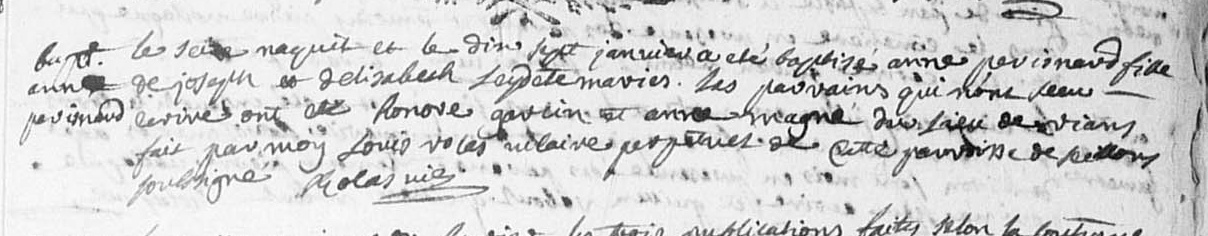 bapt. le seize naquit et le dix sept janvier a eté baptisé anne perisnard fille
anne de joseph et delisabeth Leydete mariés. Les parrains qui n'ont sceu
perisnard ecrire ont eté honoré garcin et anne magne du lieu de rians
fait par moy Louis rolas vicaire perpetuel de cette parroisse de
soussigné Rolas vic
les trois publications faites selon la coutume